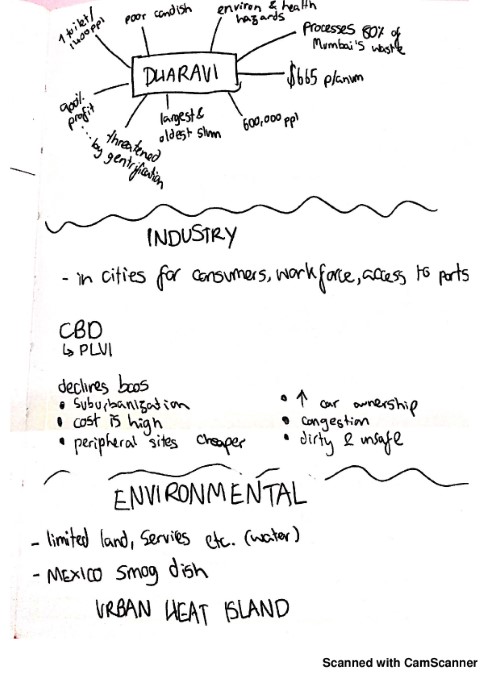 1 toilet/
1400 ppl
poor condish
environ & health
hazards
Processes 80% of
Mumbai's waste
DHARAVI
$665 p/annum
900%
profit
... threatened
by gentrification
largest &
oldest slum
600,000 ppl
INDUSTRY
- in cities for consumers, workforce, access to ports
CBD
↳ PLVI
declines bcos
• suburbanization
• cost is high
• peripheral sites cheaper
• ↑ car ownership
• congestion
• dirty & unsafe
ENVIRONMENTAL
- limited land, servies etc. (water)
- MEXICO smog dish
URBAN HEAT ISLAND
Scanned with CamScanner